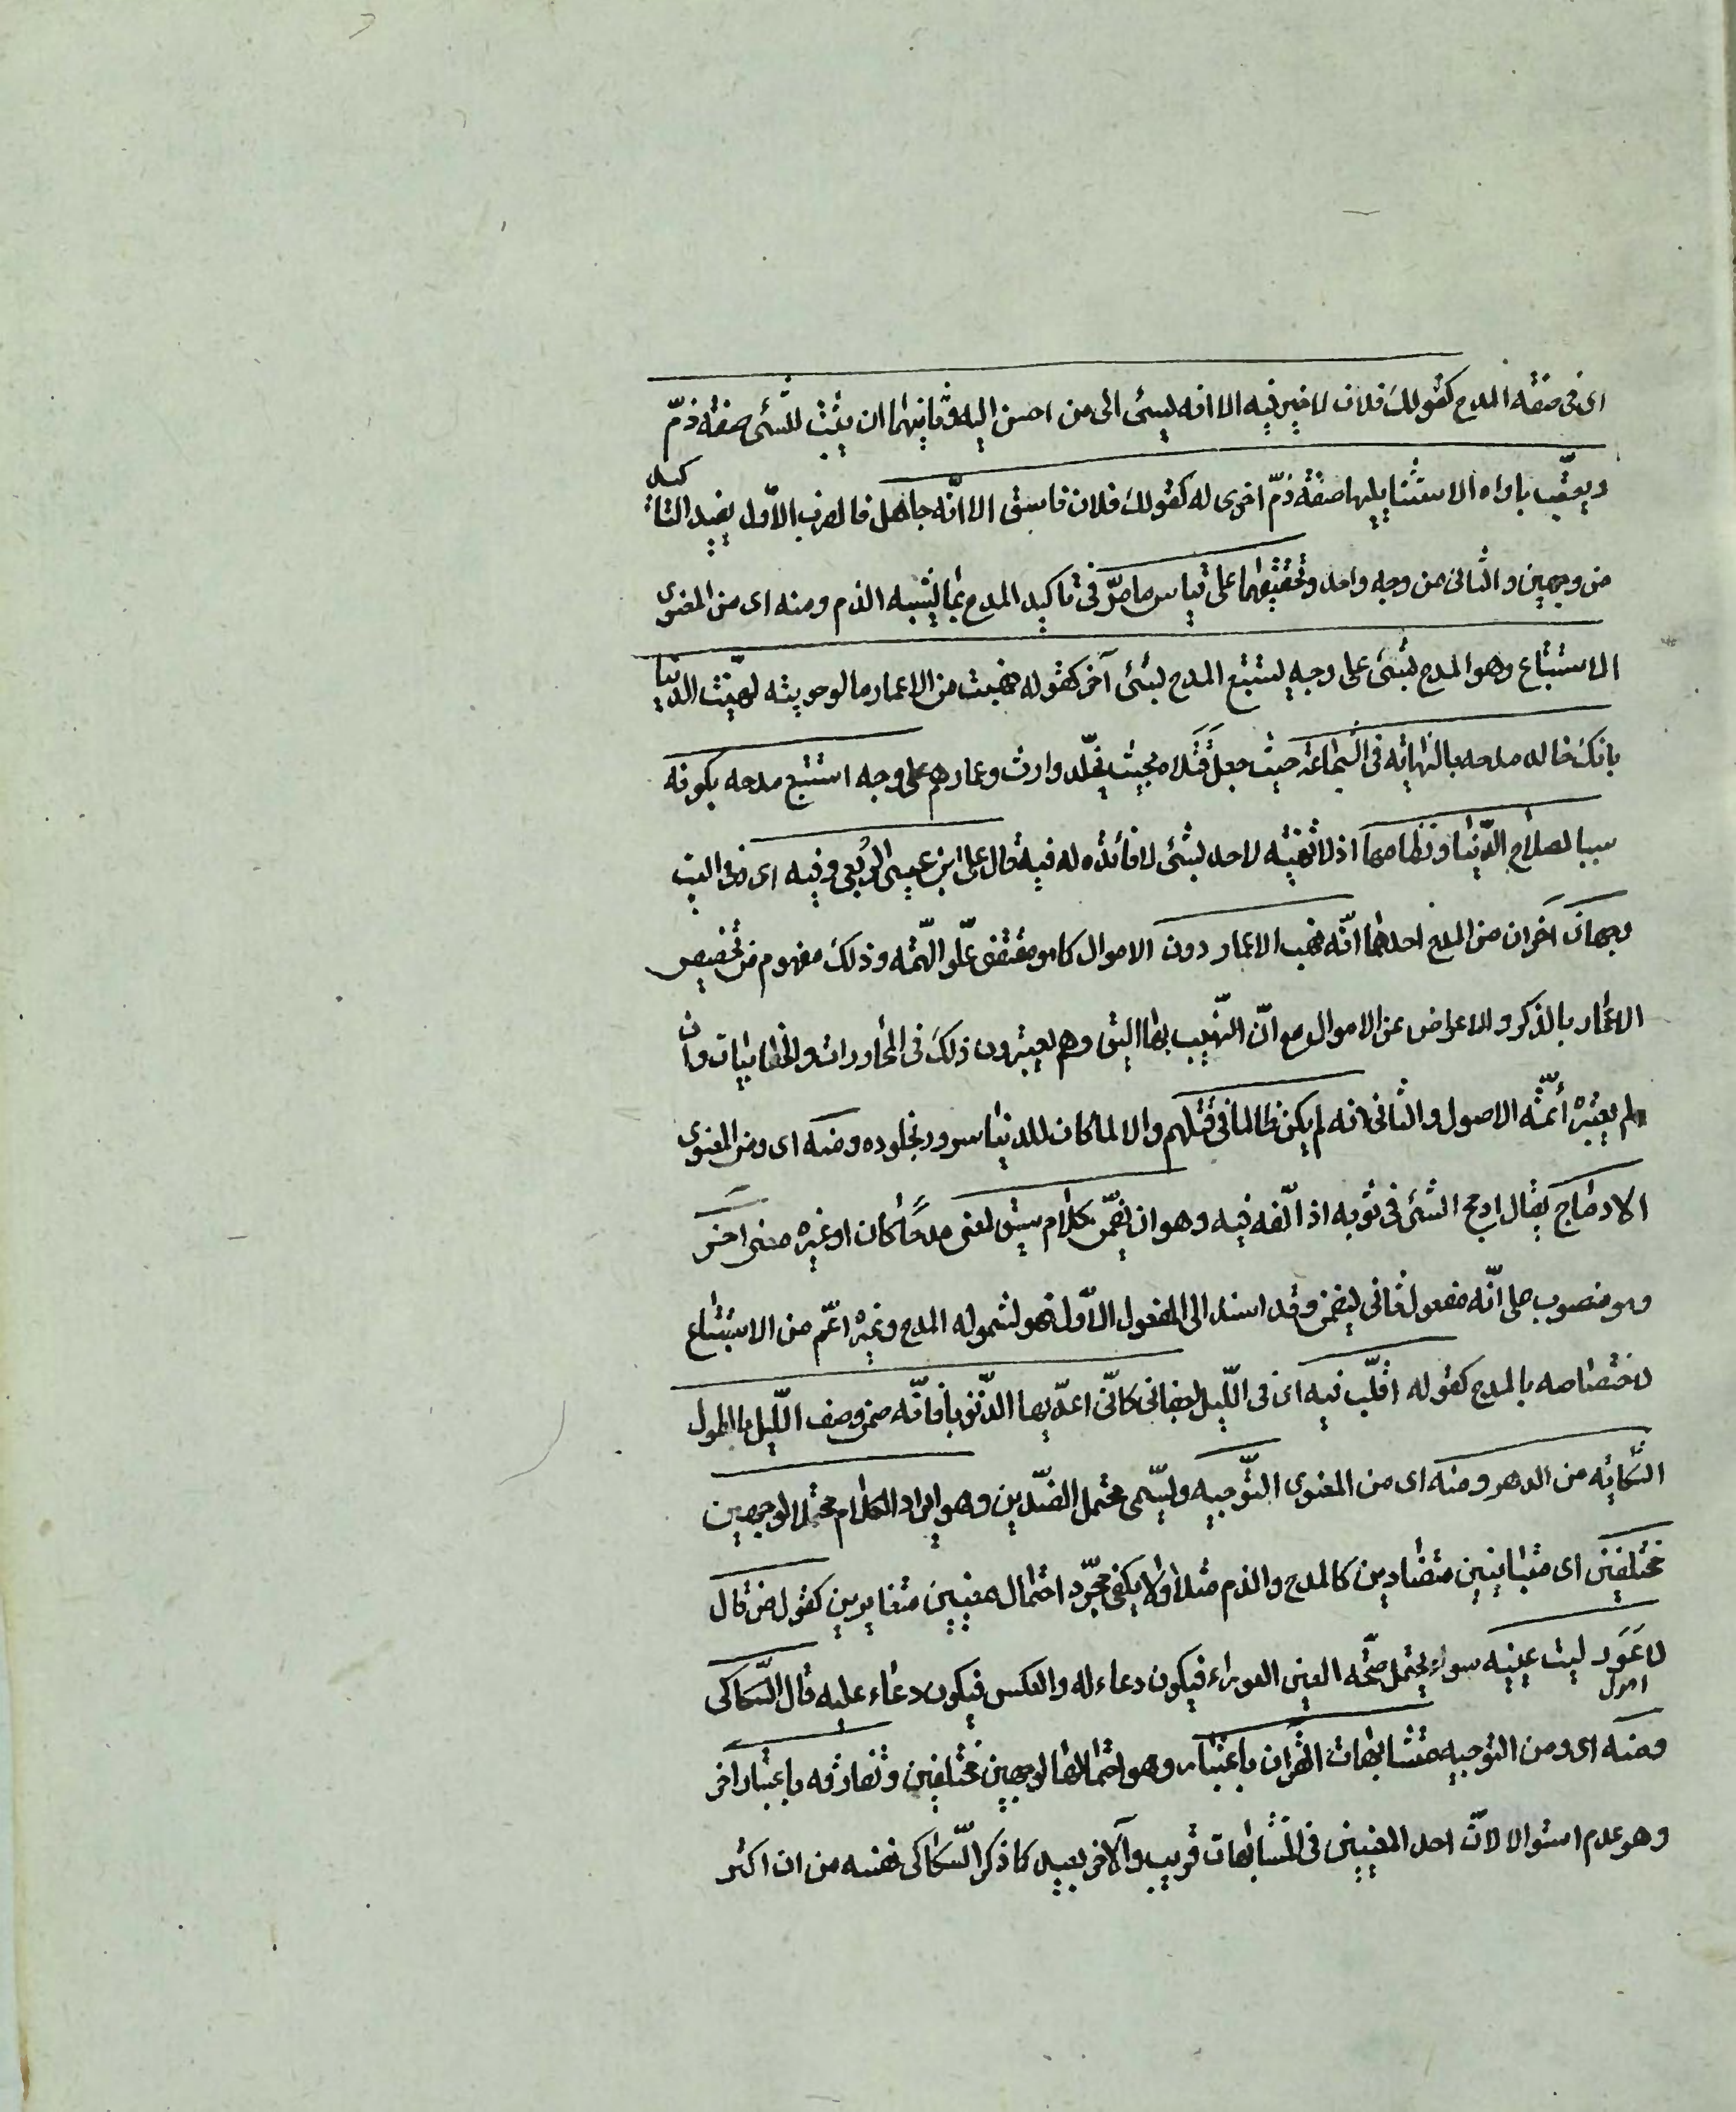 اى فى صفة المدح كقولك فلان لا خير فيه الا انه يسئ الى من احسن اليه وثانيهما ان يثبت للشئ صفة ذمّ
ويعقّب باداه الاستثنا يليها صفة ذمّ اخرى له كقولك فلان فاسق الا انّه جاهل فالضرب الاوّل يفيد التاكيد
من وجهين والثانى من وجه واحد وتحقيقهما على قياس ما مرّ فى تاكيد المدح بما يشبه الذم ومنه اى من المعنوى
الاستتباع وهو المدح بشئ على وجه يستتبع المدح بشئ آخر كقوله نهبت من الاعمار ما لو حويته لهنّئت الدنيا
بانك خالد مدحه بالنهاية فى الشجاعة حيث جعل قتلاه بحيث يخلّد وارث اعمارهم على وجه استتبع مدحه بكونه
سببا لصلاح الدّنيا ونظامها اذ لا تهنيه لاحد بشئ لا فائده له فيه قال على ابن عيسى الربعى وفيه اى فى البيت
وجهان آخران من المدح احدهما انّه نهب الاعمار دون الاموال كما هو مقتضى علّو الهّمه وذلك مفهوم من تخصيص
الاعمار بالذكر والاعراض عن الاموال مع انّ النّهب بها اليق وهم يعتبرون ذلك فى المحاورات والخطابيات وان
لم يعتبره أئمّة الاصول والثانى انه لم يكن ظالما فى قتلهم والا لما كان للدنيا سرور بخلوده ومنه اى ومن المعنوى
الادماج يقال ادمج الشئ فى ثوبه اذا لّفه فيه وهو ان يضمّن كلام سيق لمعنى مدحًا كان او غيره معنى اخر
وهو منصوب على انّه مفعول ثانى ليضمن وقد اسند الى المفعول الاوّل فهو لشموله المدح وغيره اعمّ من الاستتباع
لاختصاصه بالمدح كقوله اقلّب فيه اى فى اللّيل اجفانى كانّى اعدّ بها الدّنوبا فانّه ضمن وصف اللّيل بالطول
الشّكايه من الدهر ومنه اى من المعنوى التّوجيه ويسّمى محتمل الضّدين وهو ايراد الكلام محتملا لوجهين
مختلفين اى متباينين متضادين كالمدح والذم مثلا ولا يكفى مجرّد احتمال معنيين متغايرين كقول من قال
لاعور ليت عينيه سواء يحتمل صحّة العين العوراء فيكون دعاء له والعكس فيكون دعاء عليه قال السّكاكى
ومنه اى ومن التوجيه متشابهات القران باعتبار وهو احتمالها لوجهين مختلفين وتفارقه باعتبار اخر
وهو عدم استوا الا لانّ احد المعنيين فى المتشابهات قريب والآخر بعيد كما ذكر السّكاكى نفسه من ان اكثر